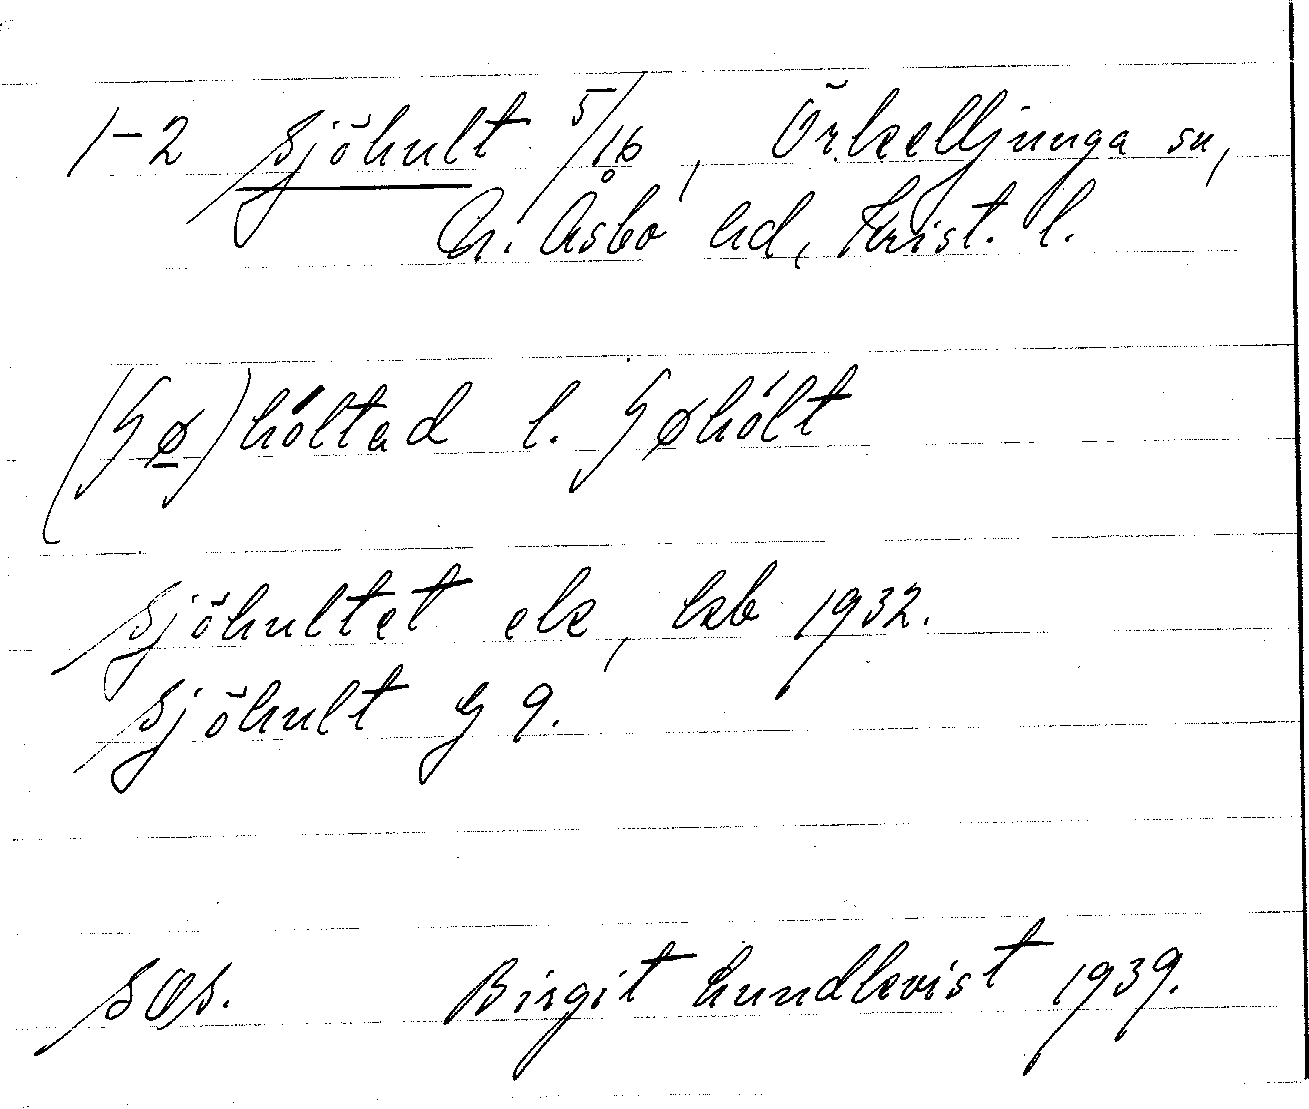 1-2 Sjöhult 5/16, Örkelljunga sn,
N. Åsbo hd, Krist. l.
(ʃø)hóltad l. ʃøhólt
Sjöhultet ek, kb 1932.
Sjöhult G 9.
SOS. Birgit Lundkvist 1939.